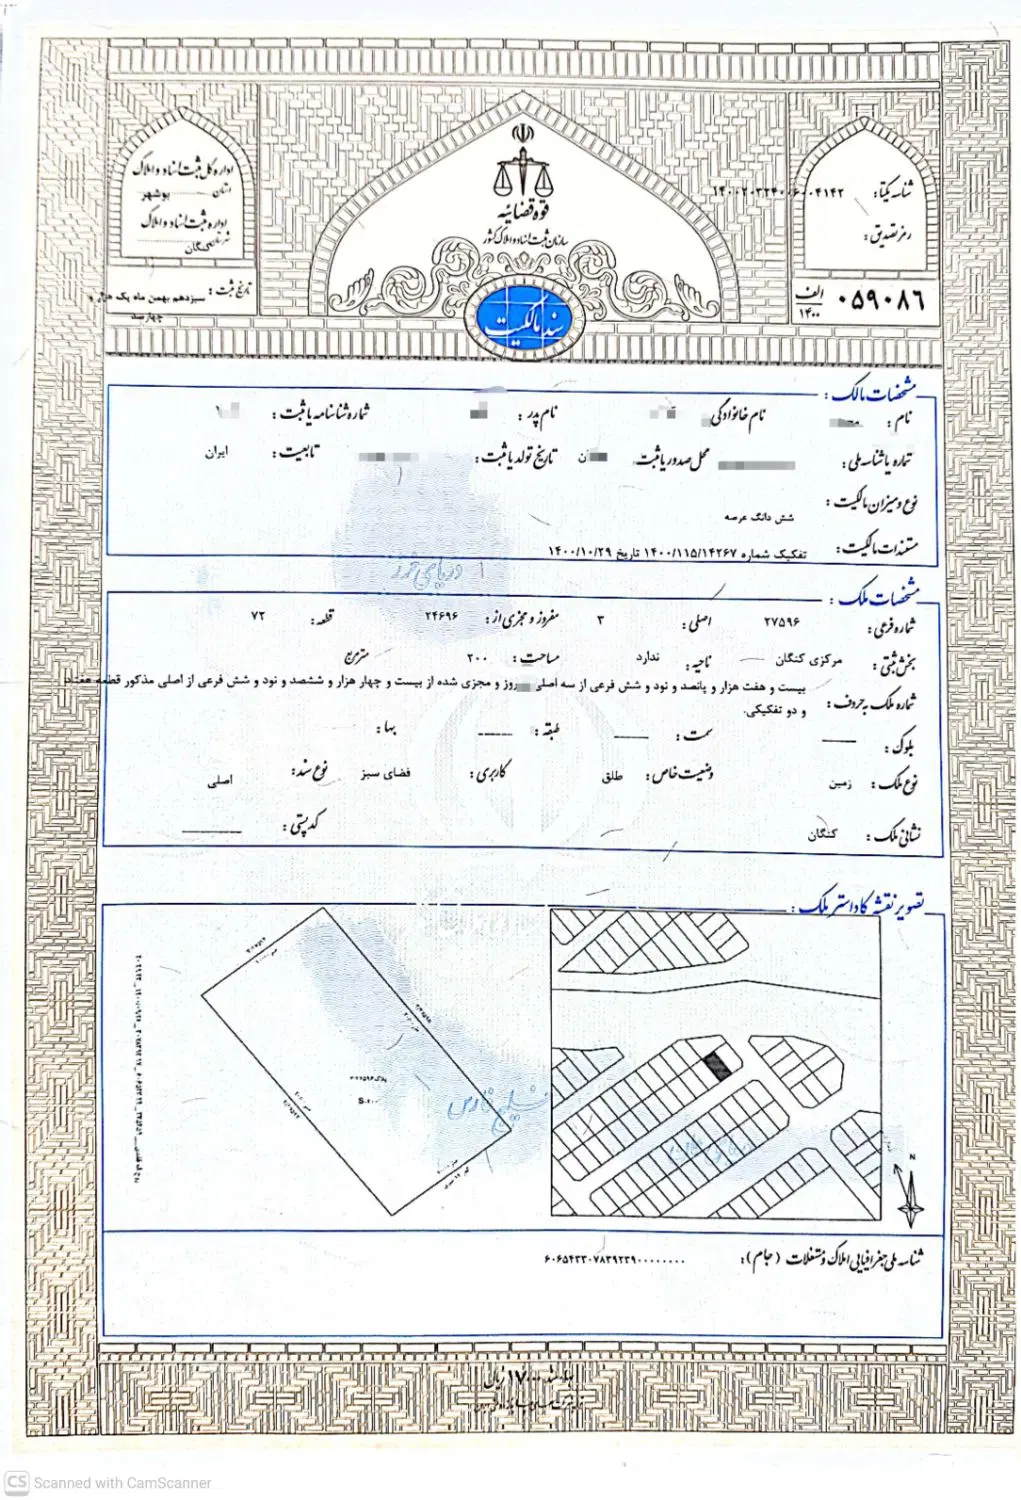 اداره کل ثبت اسناد و املاک
استان بوشهر
اداره ثبت اسناد و املاک
شهرستان کنگان
تاریخ ثبت: سیزدهم بهمن ماه یک هزار و
چهارصد
قوه قضائیه
سازمان ثبت اسناد و املاک کشور
سند مالکیت
شناسه یکتا: ۱۴۰۰۲۰۳۲۴۰۰۶۰۰۴۱۴۲
رمز تصدیق:
۰۵۹۰۸۶ الف
۱۴۰۰
مشخصات مالک:
نام: نام خانوادگی نام پدر: شماره شناسنامه یا ثبت:
شماره یا شناسه ملی: محل صدور یا ثبت: تاریخ تولد یا ثبت: تابعیت: ایران
نوع و میزان مالکیت: شش دانگ عرصه
مستندات مالکیت: تفکیک شماره ۱۴۰۰/۱۱۵/۱۴۲۶۷ تاریخ ۱۴۰۰/۱۰/۲۹
دریای خزر
مشخصات ملک:
شماره فرعی: ۲۷۵۹۶ اصلی: ۳ مفروز و مجزی از: ۲۴۶۹۶ قطعه: ۷۲
بخش ثبتی: مرکزی کنگان ناحیه: ندارد مساحت: ۲۰۰ مترمربع
شماره ملک به حروف: بیست و هفت هزار و پانصد و نود و شش فرعی از سه اصلی مفروز و مجزی شده از بیست و چهار هزار و ششصد و نود و شش فرعی از اصلی مذکور قطعه هفتاد
و دو تفکیکی.
بلوک: سمت: طبقه: بها:
نوع ملک: زمین وضعیت خاص: طلق کاربری: فضای سبز نوع سند: اصلی
نشانی ملک: کنگان کدپستی:
تصویر نقشه کاداستر ملک:
خلیج فارس
S:۲۰۰
N
شناسه ملی جغرافیایی املاک و مستغلات (جام): ۶۰۶۵۴۳۳۰۷۸۳۹۲۳۹۰۰۰۰۰۰۰۰
CS Scanned with CamScanner